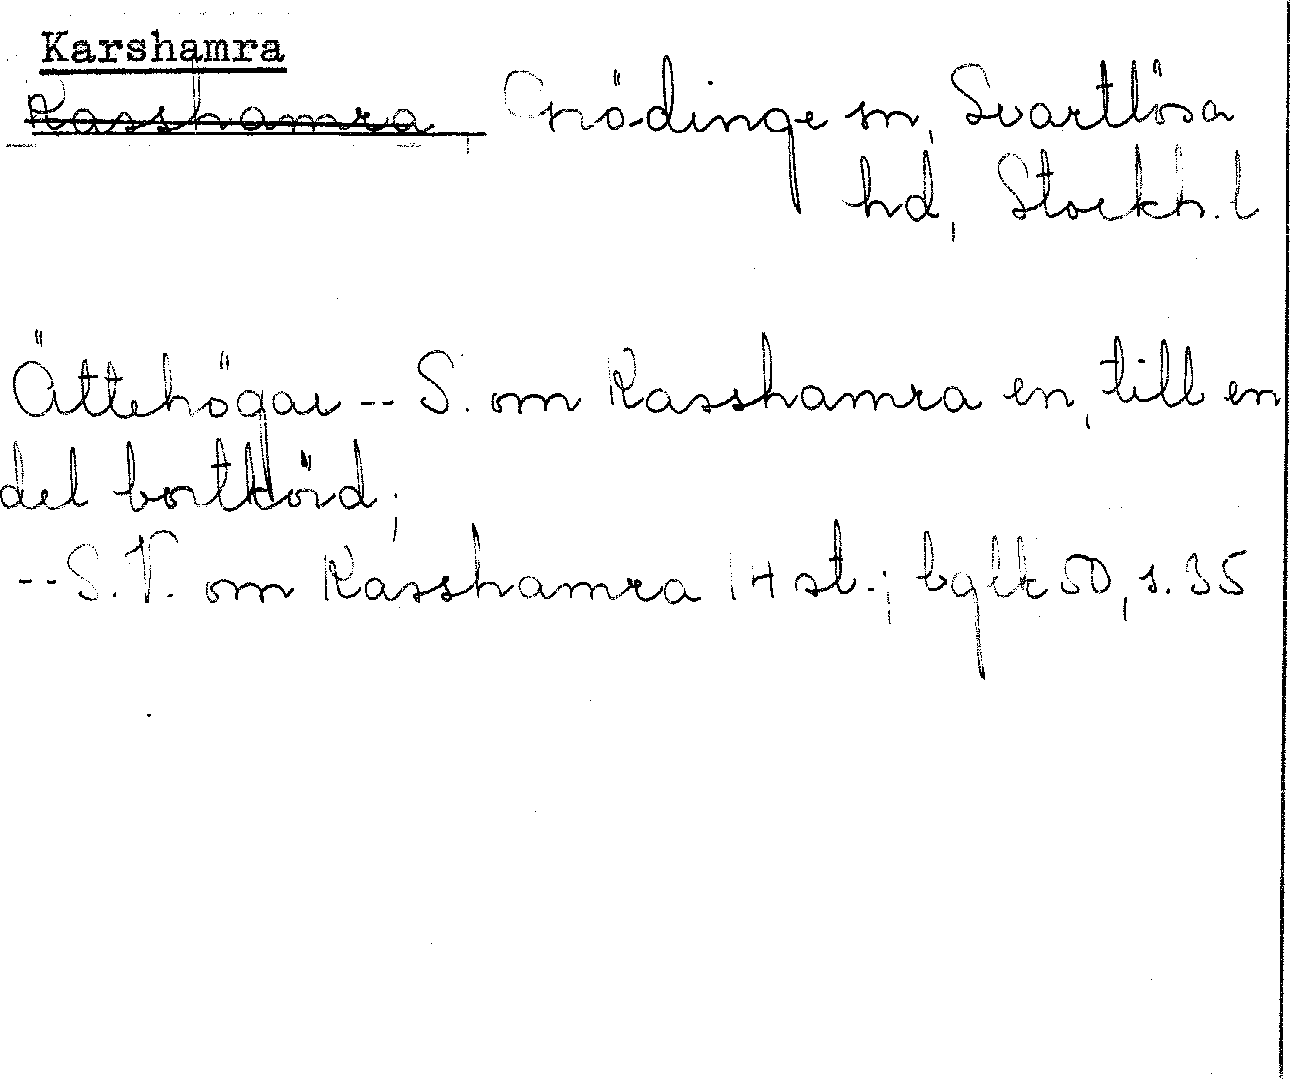 Karshamra
Kasshamra, Grödinge sn, Svartlösa
hd, Stockh. l
Ättehögar -- S. om Kasshamra en, till en
del bortkörd;
-- S.V. om Kasshamra 14 st.; bglk 50, s. 35